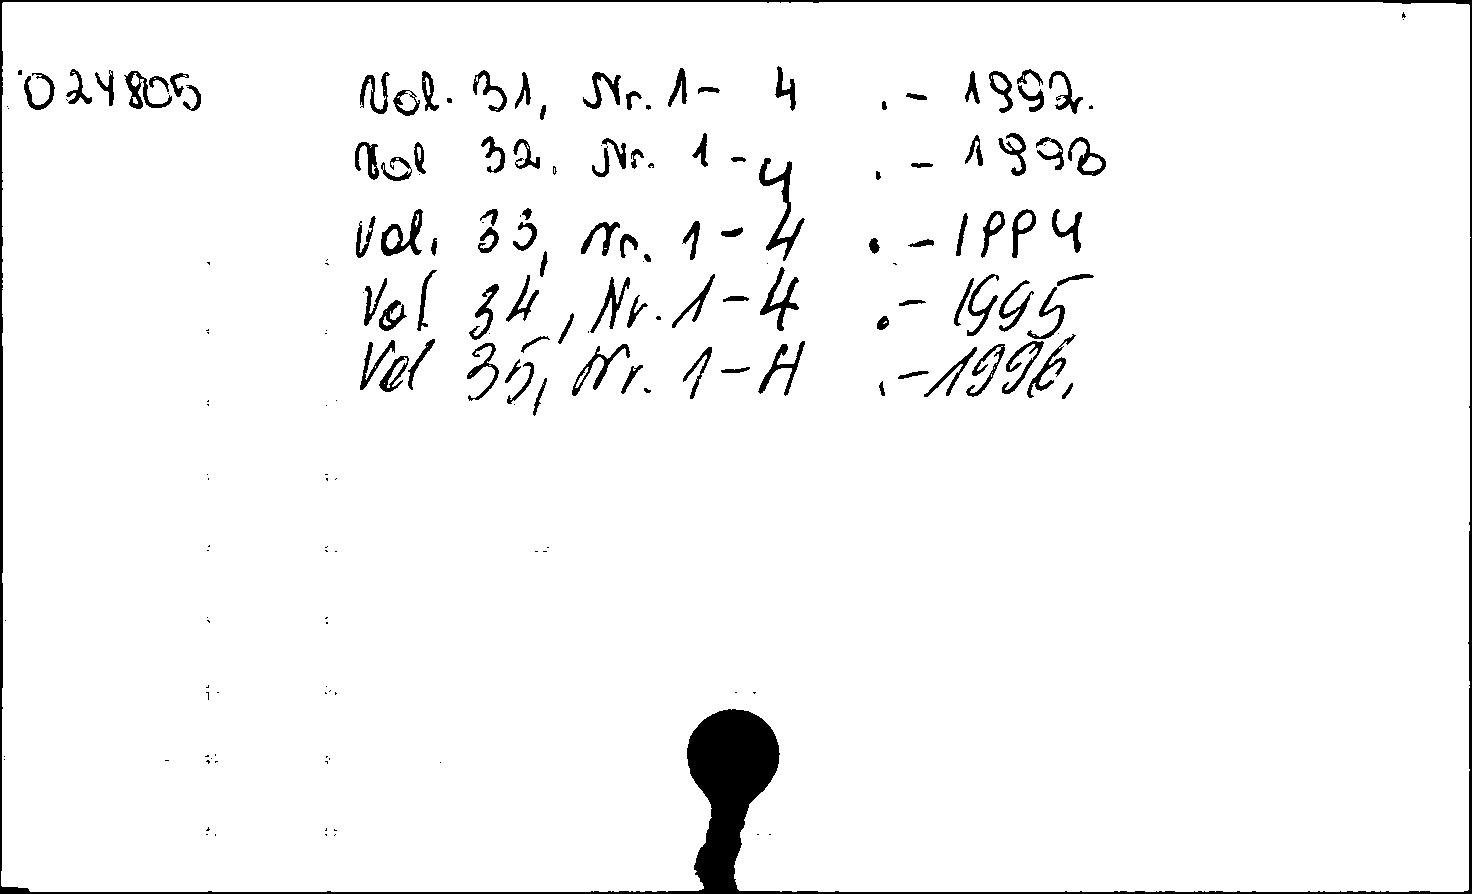 024805 Vol. 31, Nr. 1- 4 .- 1992.
Vol 32, Nr. 1-4 .- 1993
Vol. 33, Nr. 1-4 .- 1994
Vol 34, Nr. 1-4 .- 1995
Vol 35, Nr. 1-4 .- 1996.